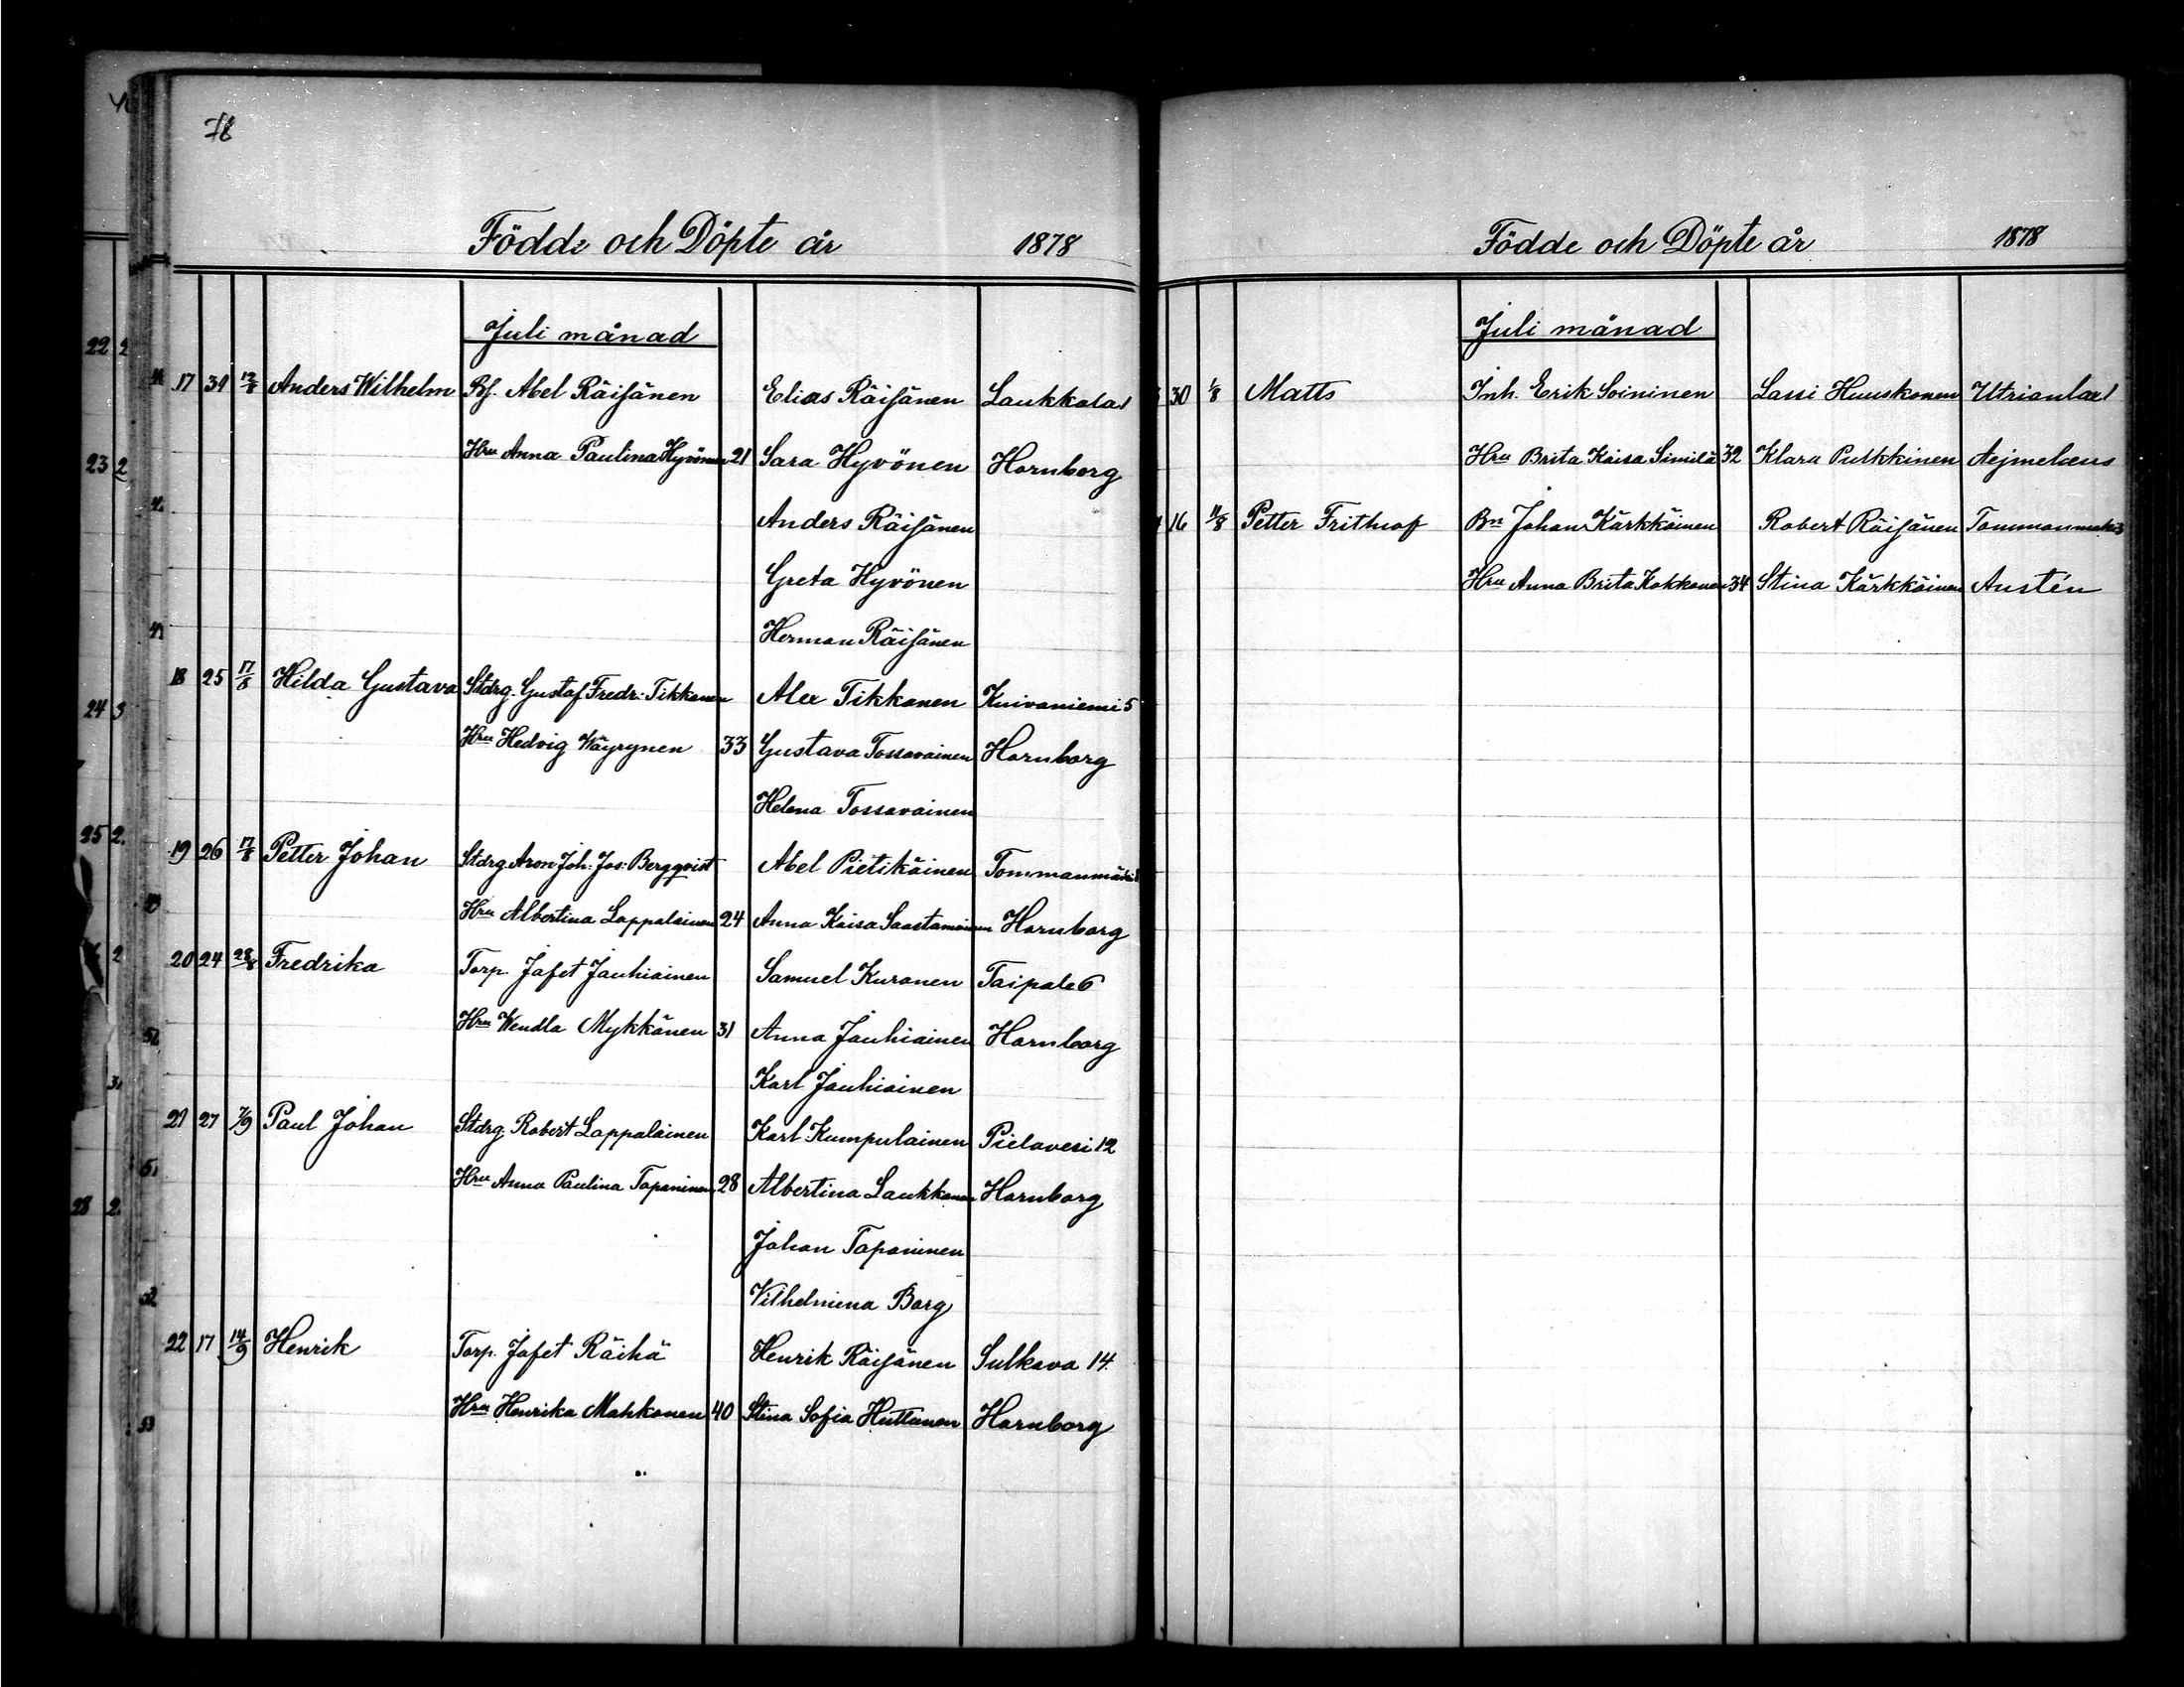 78
Födde och Döpte år 1878
Juli månad
17 31 12/8 Anders Wilhelm Bf. Abel Räisänen Elias Räisänen Laukkala 1
Hru Anna Paulina Hyvönen 21 Sara Hyvönen Hornborg
Anders Räisänen
Greta Hyvönen
Herman Räisänen
18 25 17/8 Hilda Gustava Stdrg. Gustaf Fredr. Tikkanen Alex Tikkanen Kuivaniemi 5
Hru Hedvig Wäyrynen 33 Gustava Tossavainen Hornborg
Helena Tossavainen
19 26 17/8 Petter Johan Stdrg. Aron Joh. Jos. Bergqvist Abel Pietikäinen Tommanmäki
Hru Albertina Lappalainen 24 Anna Kaisa Saastamoinen Hornborg
20 24 28/8 Fredrika Torp. Jafet Jauhiainen Samuel Kuronen Taipale 6
Hru Wendla Mykkänen 31 Anna Jauhiainen Hornborg
Karl Jauhiainen
21 27 7/9 Paul Johan Stdrg. Robert Lappalainen Karl Kumpulainen Pielavesi 12
Hru Anna Paulina Tapaninen 28 Albertina Laukkanen Hornborg
Johan Tapaninen
Vilhelmina Borg
22 17 14/9 Henrik Torp. Jafet Räihä Henrik Räisänen Sulkava 14.
Hru Henrika Mahkonen 40 Stina Sofia Huttunen Hornborg
Födde och Döpte år 1878
Juli månad
30 1/8 Matts Inh. Erik Soininen Lassi Huuskonen Utrianlax 1
Hru Brita Kaisa Similä 32 Klara Pulkkinen Aejmelæus
16 11/8 Petter Frithiof Bn Johan Kärkkäinen Robert Räisänen Tommonmäki 3
Hru Anna Brita Kokkonen 34 Stina Kärkkäinen Austén